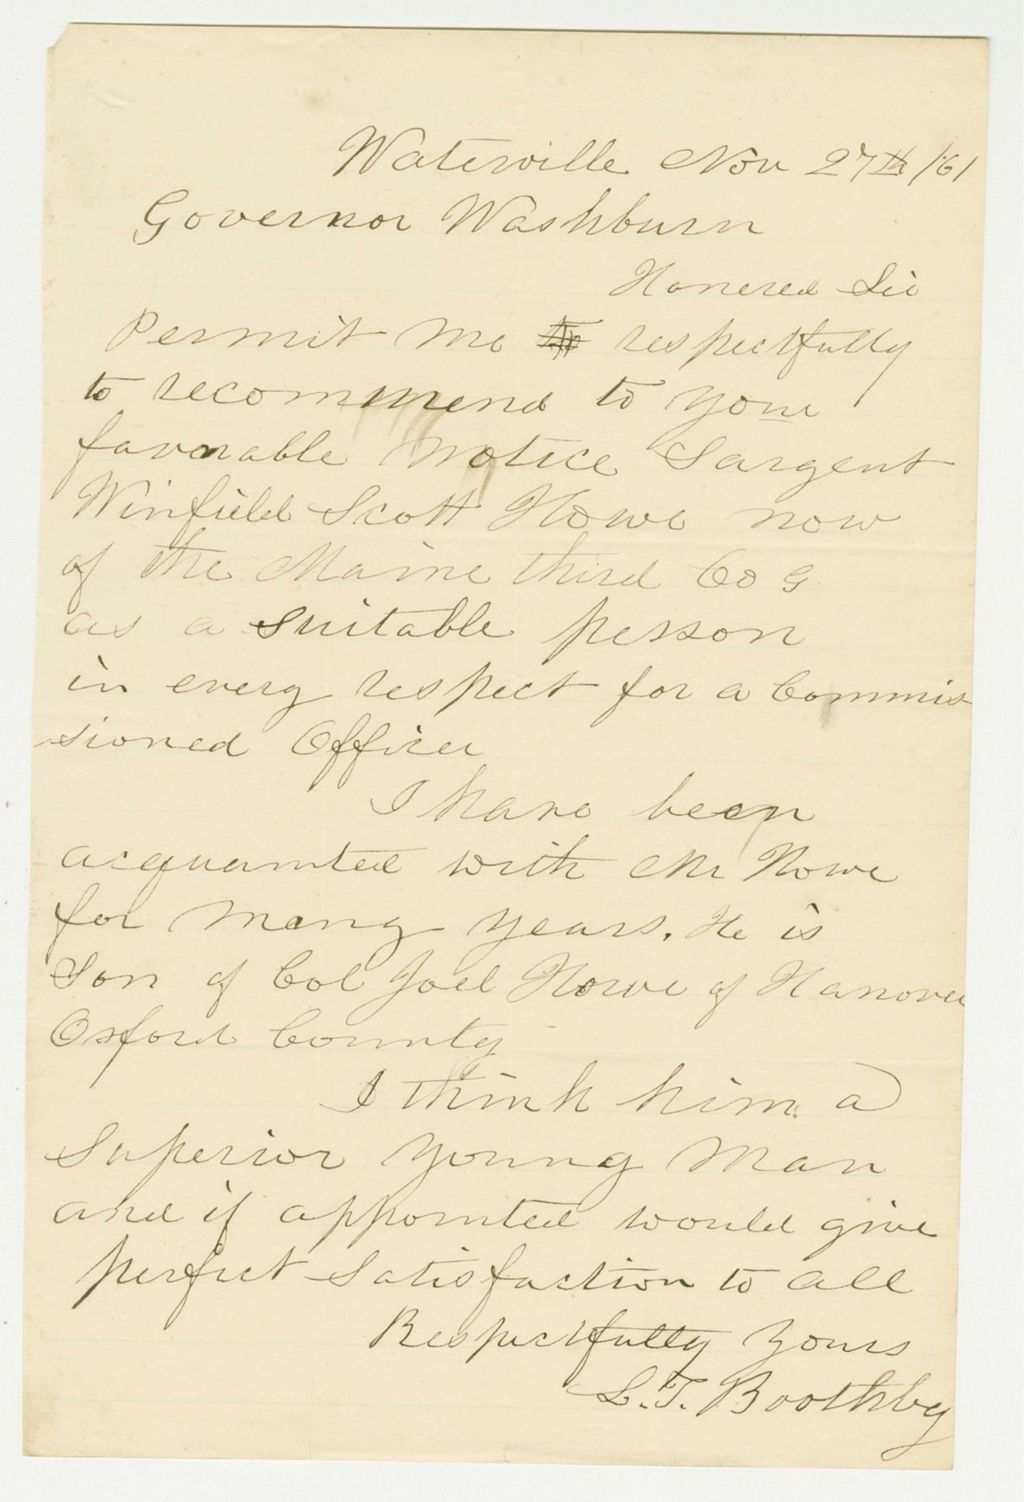 Waterville Nov 27th /61
Governor Washburn
Honered Sir
Permit me respectfully
to recommend to your
favorable notice Sargent
Winfield Scott Howe now
of the Maine third Co G
as a suitable person
in every respect for a Commis
sioned Officer
I have been
acquainted with Mr Howe
for many years. He is
Son of Col Joel Howe of Hanover
Oxford County
I think him a
Superior young Man
and if appointed would give
perfect satisfaction to all
Respectfully Yours
L. T. Boothby